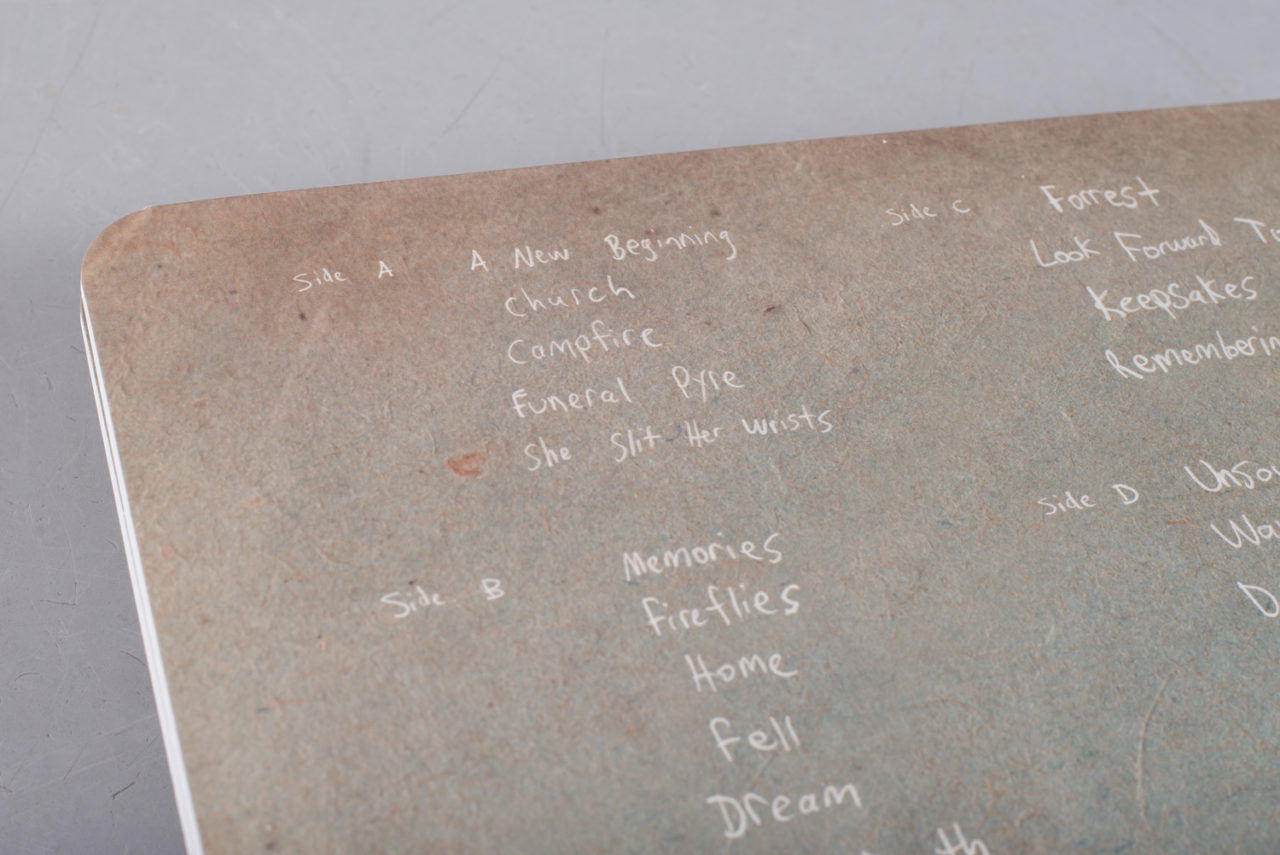 Side A
A New Beginning
Church
Campfire
Funeral Pyre
She Slit Her Wrists
Side B
Memories
Fireflies
Home
Fell
Dream
Side C
Forrest
Look Forward
Keepsakes
Side D